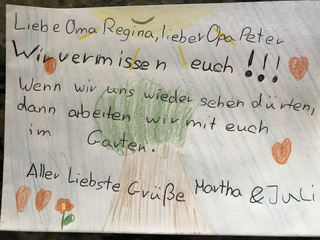 Liebe Oma Regina, lieber Opa Peter
Wir vermissen euch !!!
Wenn wir uns wieder sehen dürfen,
dann arbeiten wir mit euch
im Garten.
Aller Liebste Grüße Martha & Juli